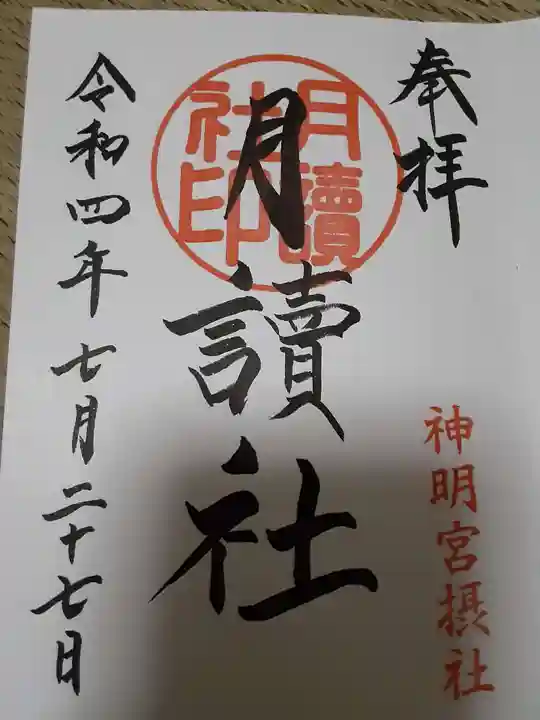 奉拝
神明宮摂社
月讀社印
月讀社
令和四年七月二十七日